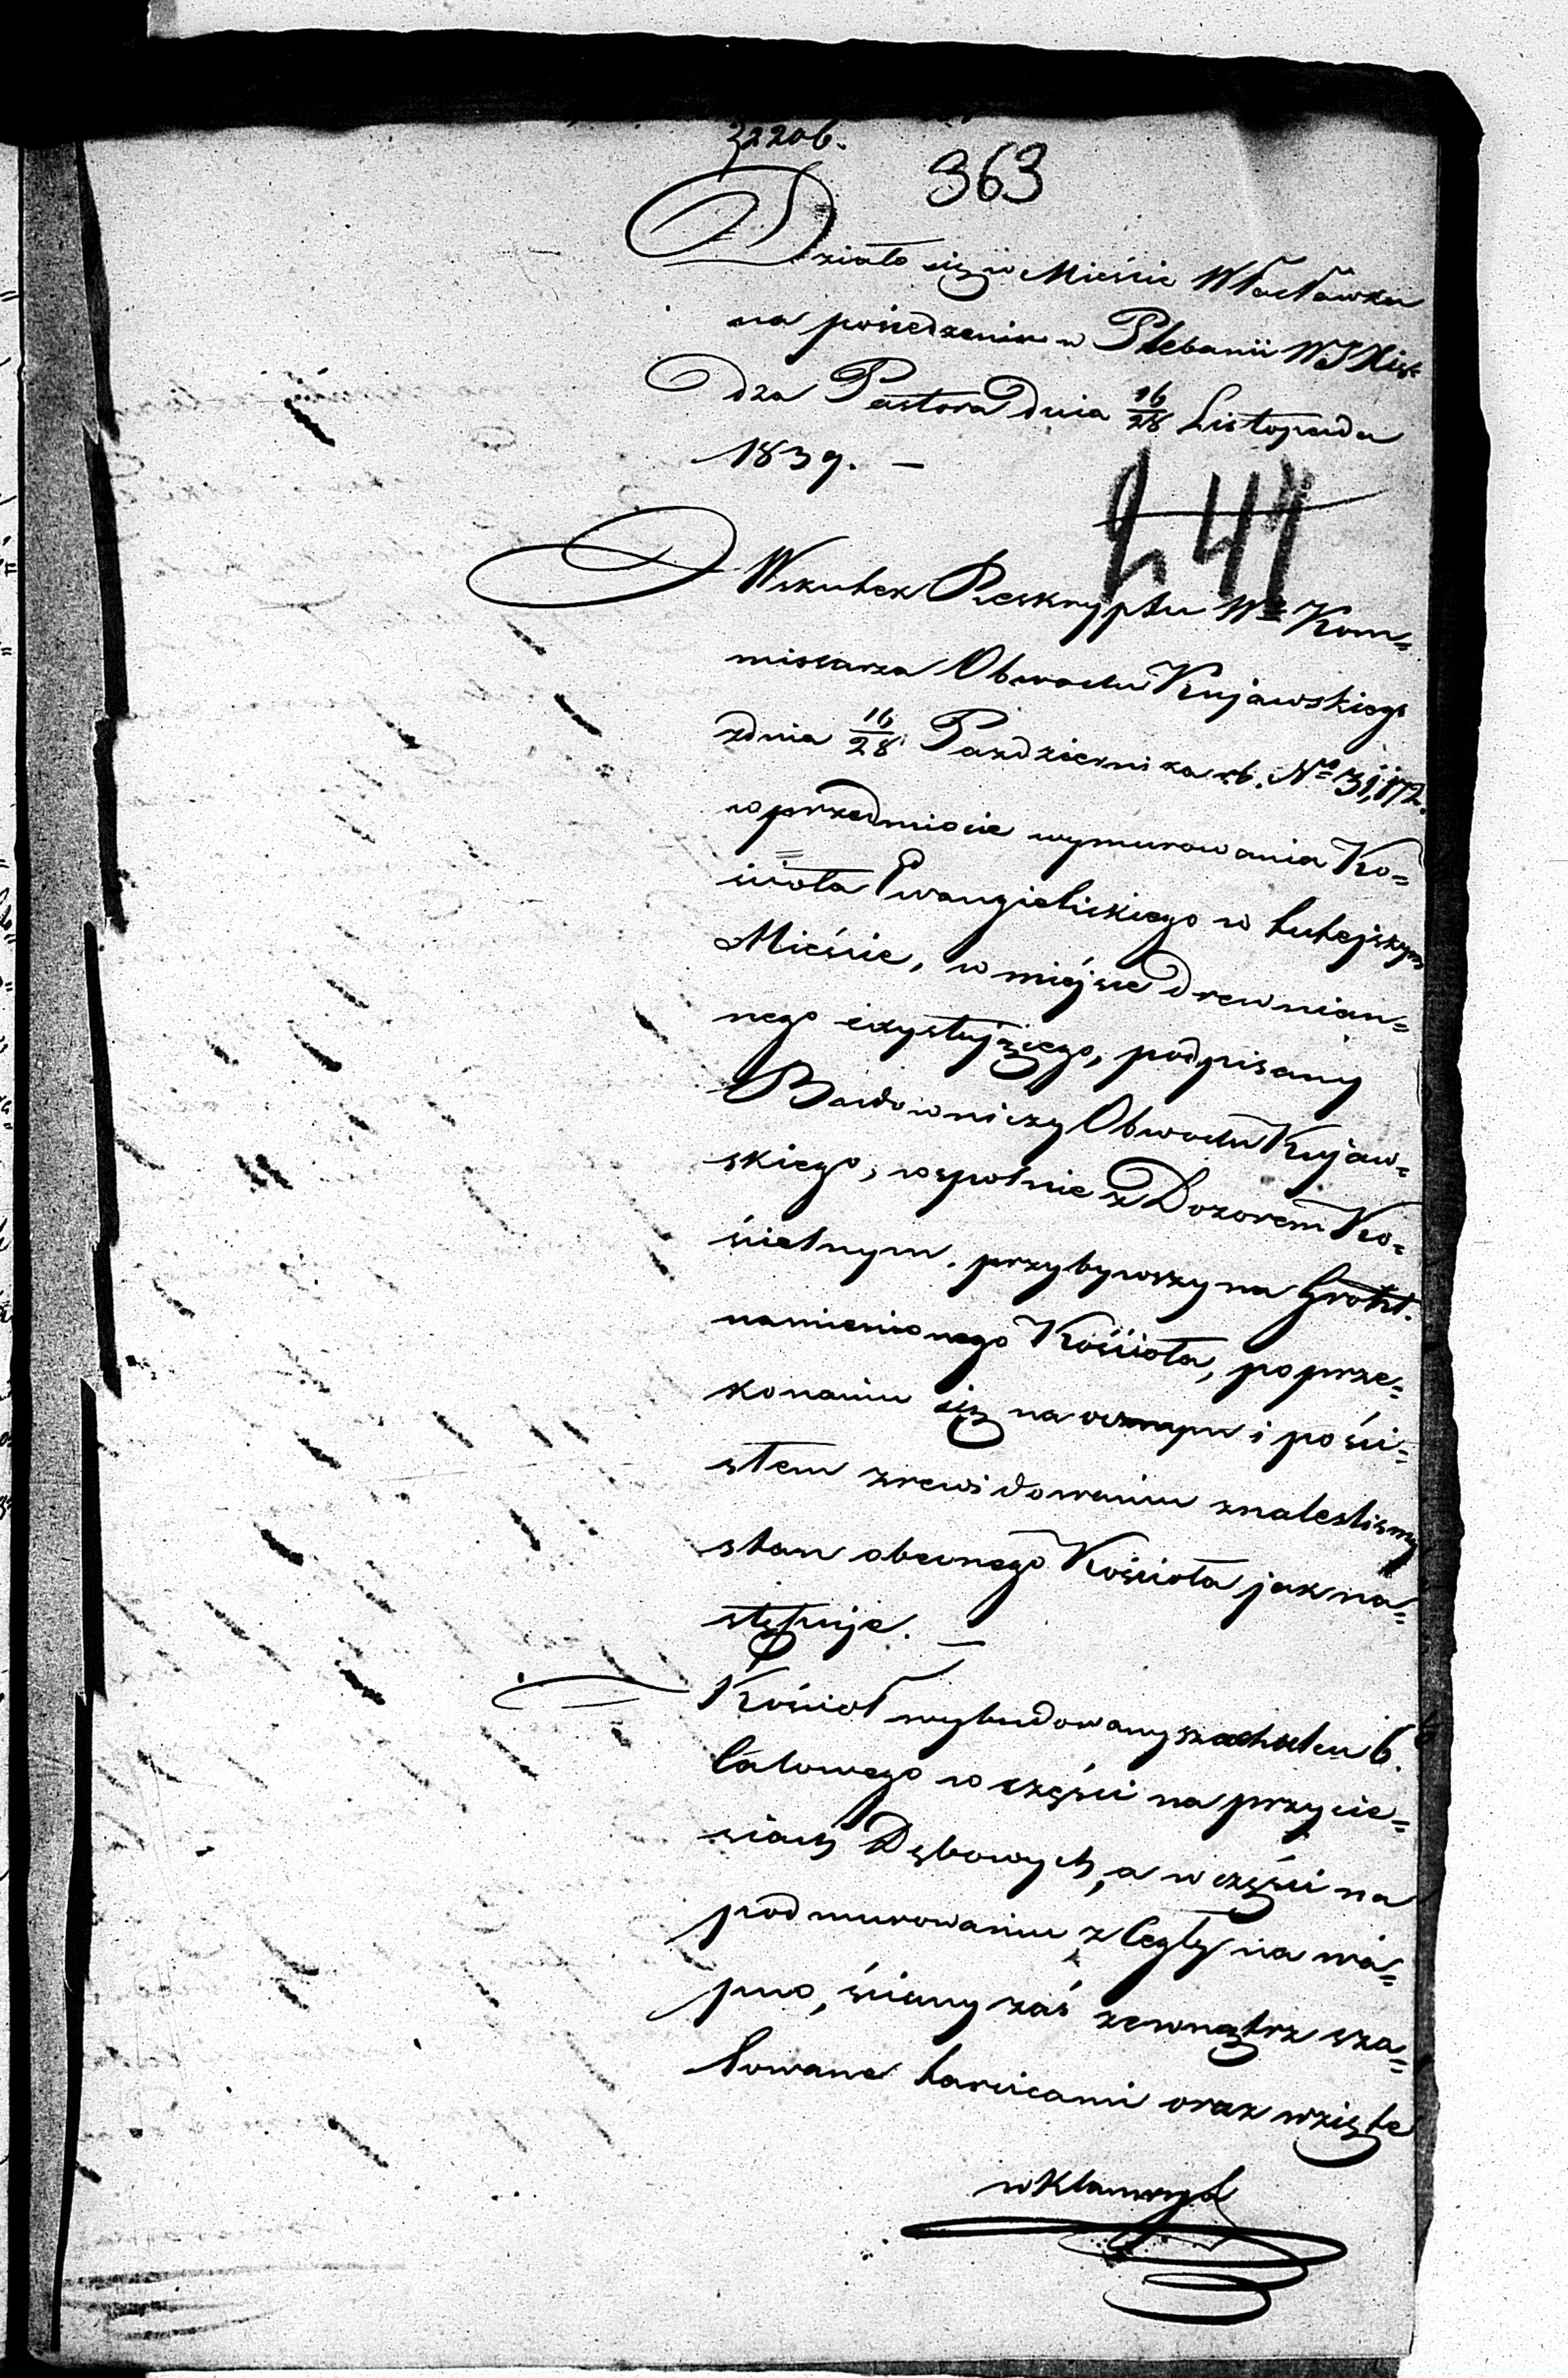 363
Działo się w Mieście Włocławku
na posiedzeniu w Plebanii WJ Xię-
dza Pastora Dnia 16/28 Listopada
1839. —
241
Wskutek Reskryptu Wo Kom=
missarza Obwodu Kujawskiego
zdnia 16/28 Pazdziernika rb. No 31,172.
w przedmiocie wymurowania Ko=
ścioła Ewangielickiego w tutejszym
Mieście, w miéjsce Drewnian=
nego exystującego, podpisany
Budowniczy Obwodu Kujaw=
skiego, wspolnie z Dozorem Ko=
ścielnym, przybywszy na Grunt.
namienionego Kościoła, po prze=
konaniu się na ocznym i po ści=
słem zrewidowaniu znaleslismy
stan obecnego Kościoła jak na=
stępuje. —
Kościoł wybudowany 6.
calowego w części na przycie=
siach Dębowych, a w części na
podmurowaniu z Cegły na wa=
pno, ściany zaś zewnątrz sza=
lowane tarcicami oraz wzięte
w Klamry